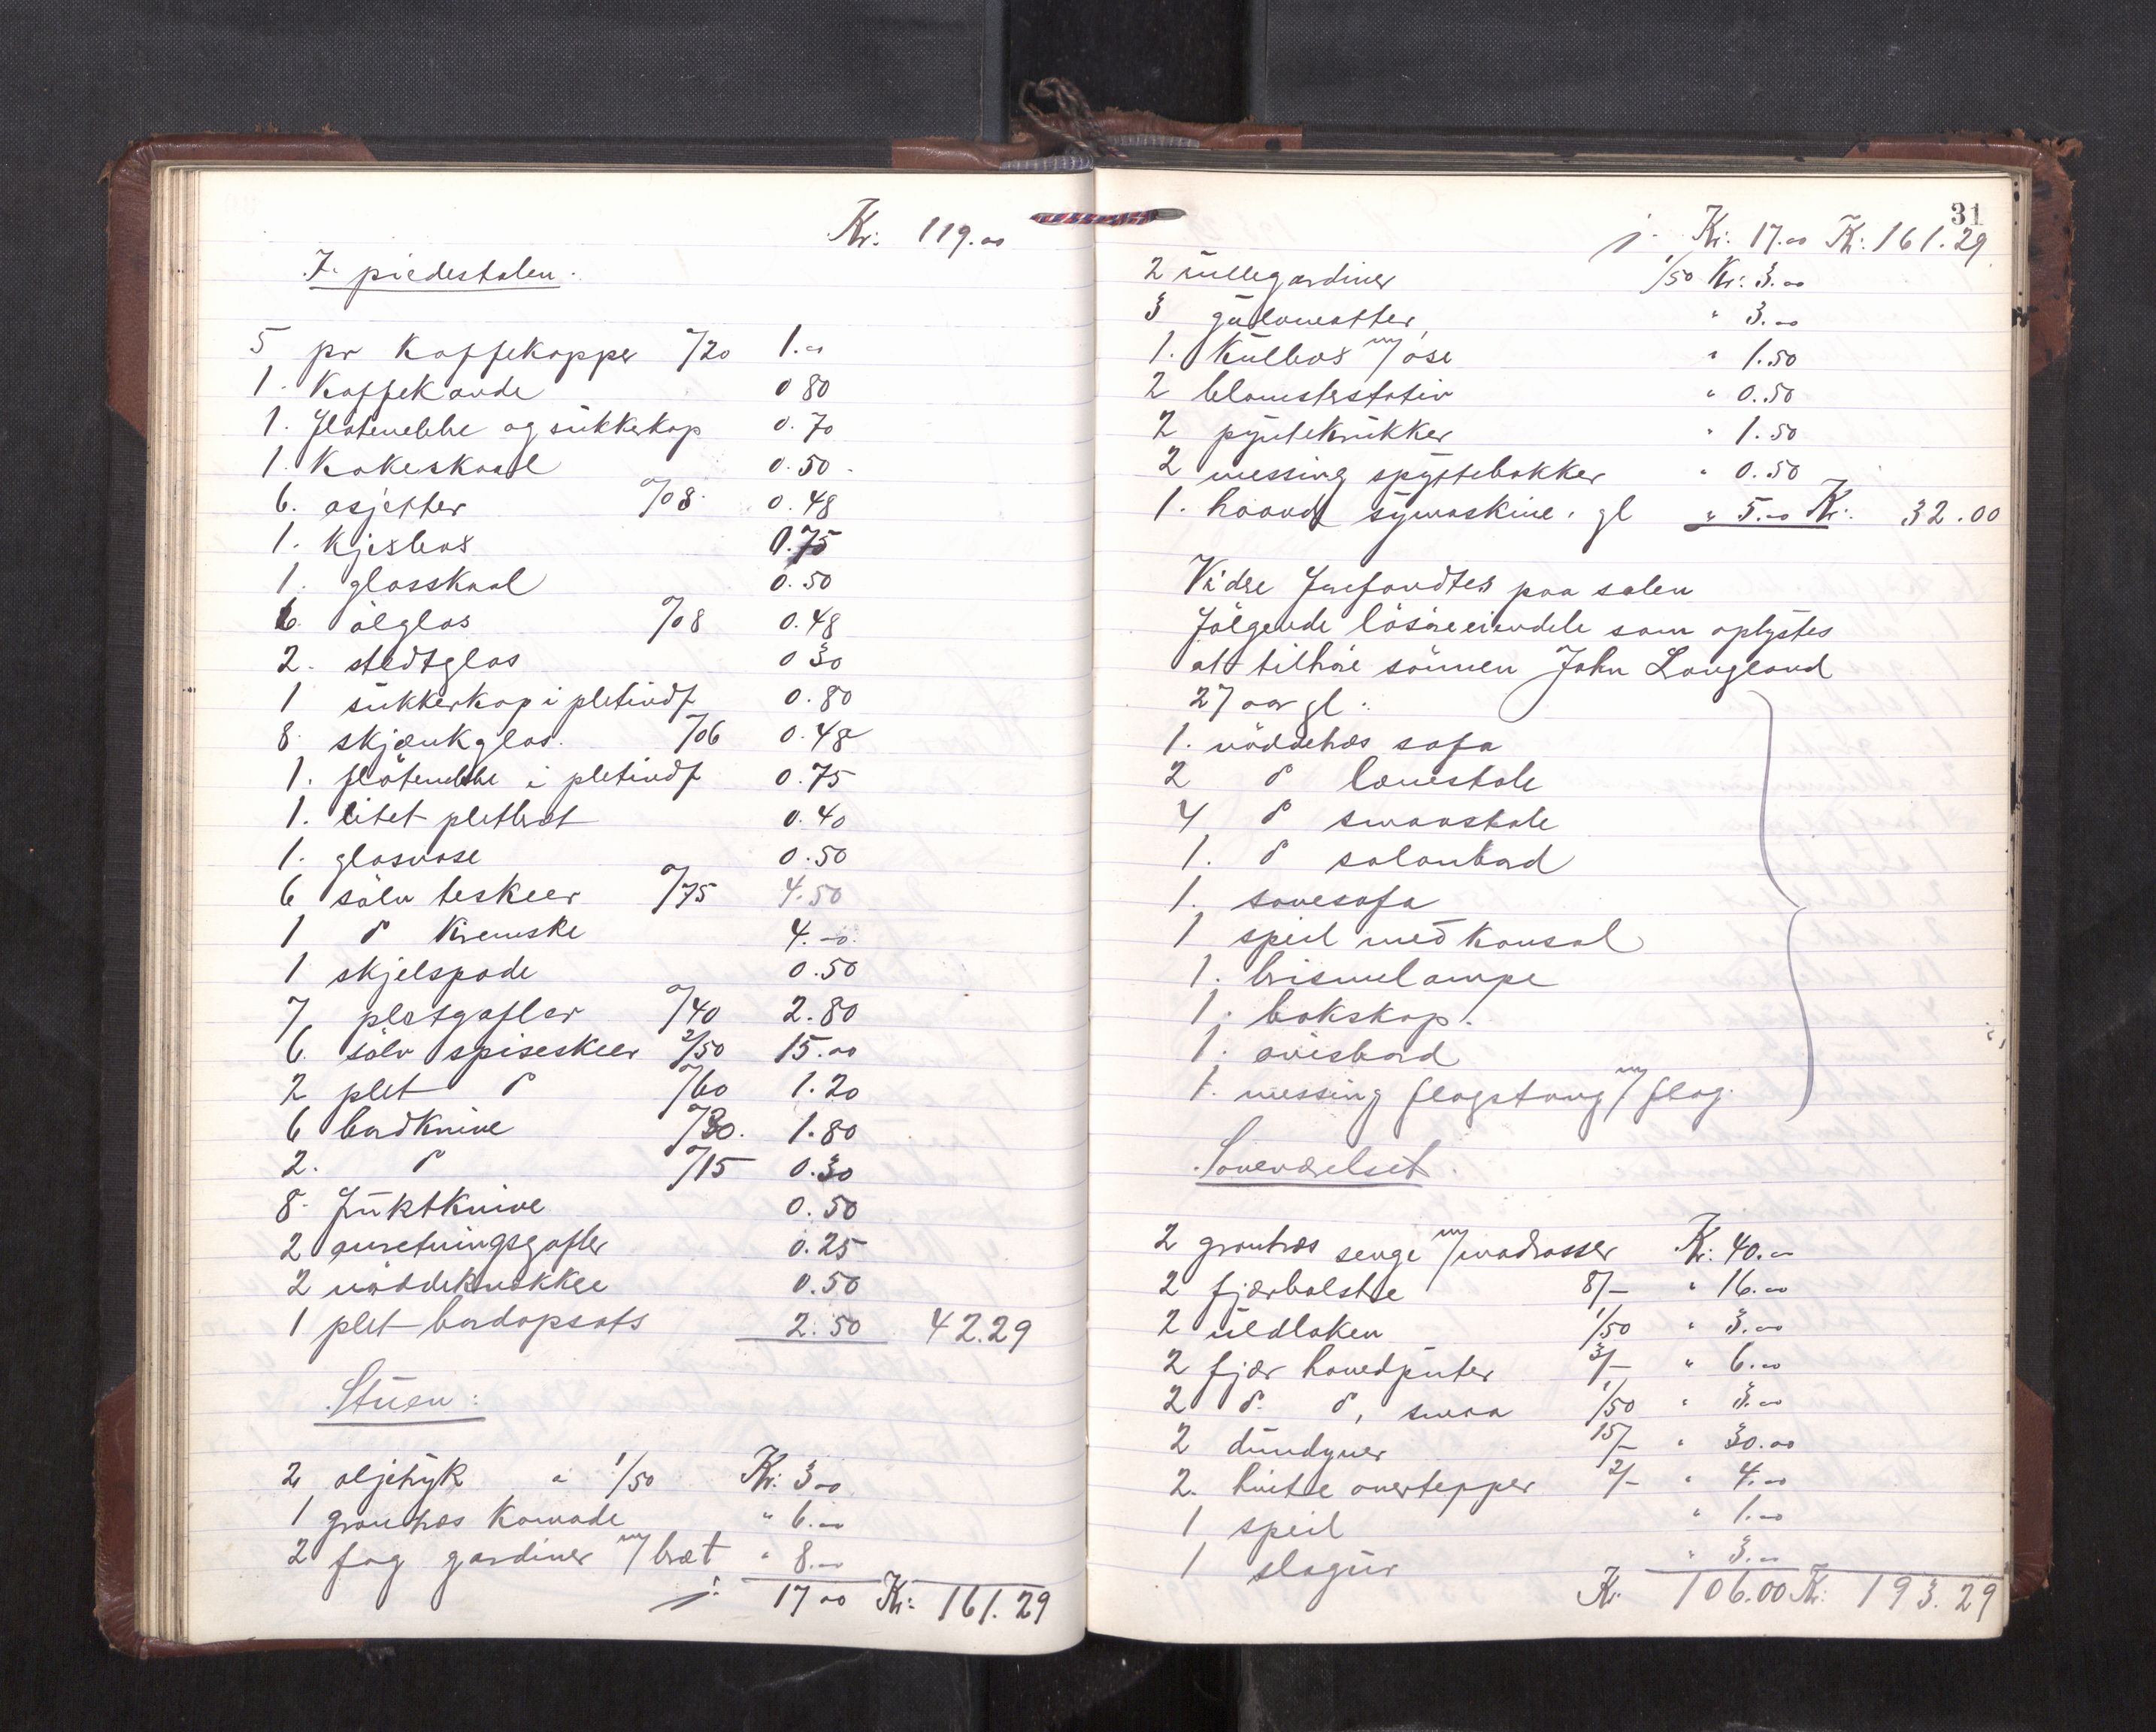 Kr: 119.00
I piedestalen:
5 pr Kaffekopper %20 1.00
1. Kaffekande 0 80
1. fløtenebbe og sukkerkop 0.70
1. Kakeskaal 0.50
6. asjetter %08 0.48
1. Kjeisbos 0.75
1. glasskaal 0.50
6. ølglas %08 0.48
2. stedtglas 0 30
1 sukkerkop i pletindf 0.80
8. skjænkglas. %06 0.48
1. fløtenebbe i pletindf 0.75
1. litet pletbret 0.40
1. glasvase 0.50
6 sølv teskeer %75 4.50
1 d° Kremske 4.00
1 skjelspade 0.50
7 pletgafler %40 2.80
6. sølv spiseskeer 2/50 15.00
2 plet d° %60 1.20
6 bordknive %30. 1.80
2. d° %15 0.30
8. fruktknive 0.50
2 anretningsgafler 0.25
2 nøddeknækkere 0.50
1 plet bordopsats 2.50 42.29
Stuen:
2 oljetryk a 1/50 Kr: 3.00
1 grantræs Komode " 6.00
2 fag gardiner m/bræt " 8.00
17 00 Kr: 161.29
31
Kr. 17.00 Kr: 161.29
2 rullegardiner 1/50 Kr: 3.00
3 gulvmatter " 3.00
1. Kulbos m/ øse " 1.50
2 blomsterstativ " 0.50
2 pyntekrukker " 1.50
2 messing spyttebakker " 0.50
1. haand symaskine. gl " 5.00 Kr: 32.00
Videre forefandtes paa salen
følgende løsøreeiendele som oplystes
at tilhøre sønnen John Langland
27 aar gl.
1. nøddetræs sofa
2 d° lænestole
4 d° smaastole
1. d° salonbord
1. sovesofa
1 speil med Konsol
1. brismelampe
1. bokskap.
1. avisbord
1. messing flagstang m/ flag.
Soveværelset.
2 grantræs senge m/madrasser Kr: 40.00
2 fjærbolstre 8/- " 16.00
2 uldlaken 1/50 " 3.00
2 fjær hovedputer 3/- " 6.00
2 d° d°, smaa 1/50 " 3.00
2 dundyner 15/- " 30.00
2. hvite overtepper 2/- " 4.00
1 speil " 1.00
1 slagur " 3.00
Kr. 106.00 Kr: 193.29